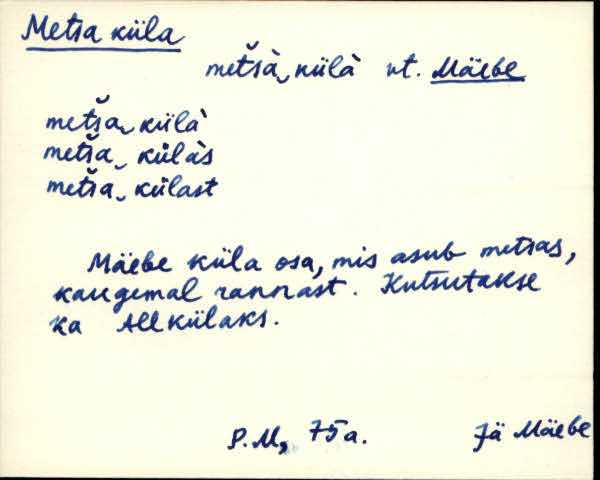 Metsa küla
metšà‿külà vt. Mäebe
metša‿külà
metša‿külàs
metša‿külast
Mäebe küla osa, mis asub metsas,
kaugemal rannast. Kutsutakse
ka Allkülaks.
P.M, 75a. Jä Mäebe